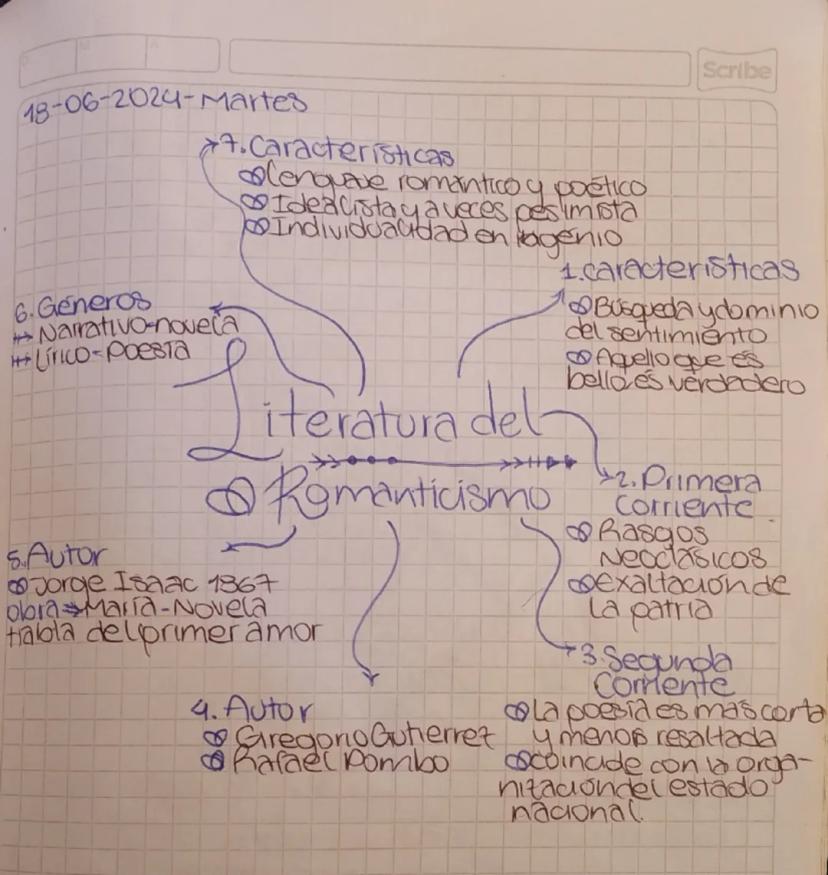 Scribe
18-06-2024-Martes
7. Características
Lenguaje romántico y poético
Idealista y a veces pesimista
Individualidad en la genio
1. características
Búsqueda y dominio
del sentimiento
Aquello que es
bello es verdadero
6. Géneros
Narrativo-novela
Lírico-poesía
Literatura del
Romanticismo
2. Primera
corriente
Rasgos
Neoclásicos
exaltación de
la patria
3. Segunda
Corriente
La poesía es más corta
y menos resaltada
coincide con la orga-
nización del estado
nacional.
4. Autor
Gregorio Gutierrez
Rafael Pombo
5. Autor
Jorge Isaac 1867
obra ⇒ María-Novela
Habla del primer amor